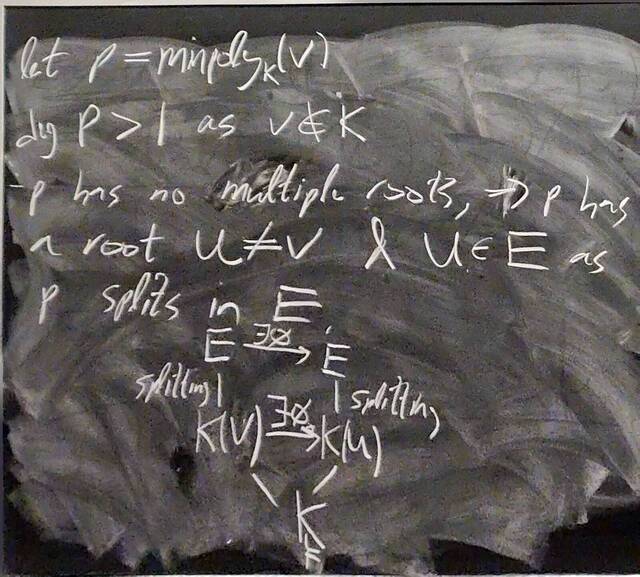 let p = minpoly_K(v)
deg p > 1 as v ∉ K
p has no multiple roots, ⇒ p has
a root u ≠ v & u ∈ E as
p splits in E.
E ∃∅→ E
splitting | | splitting
K(v) ∃∅→ K(u)
\ /
K
F